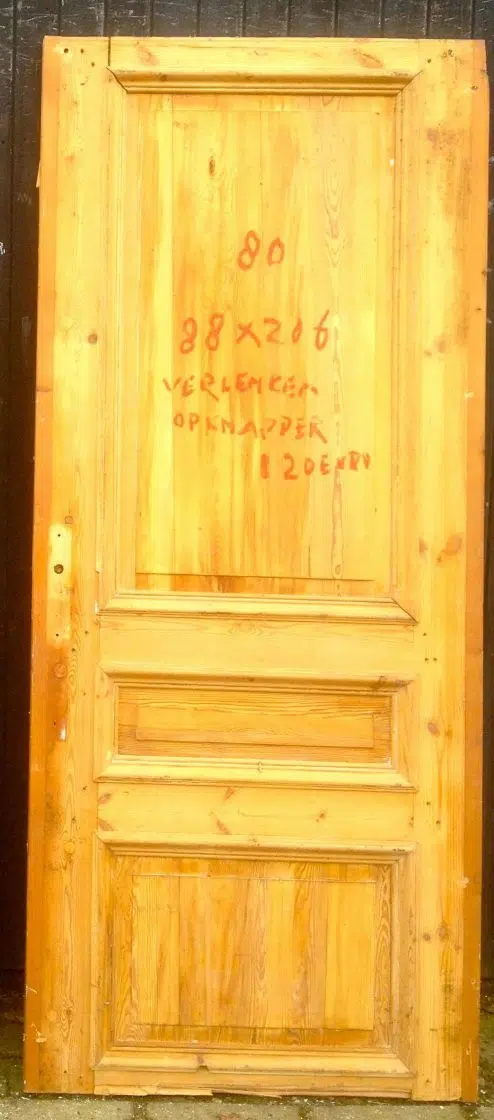 80
88X206
VERLENKEN
OPKNAPPER
120EURO